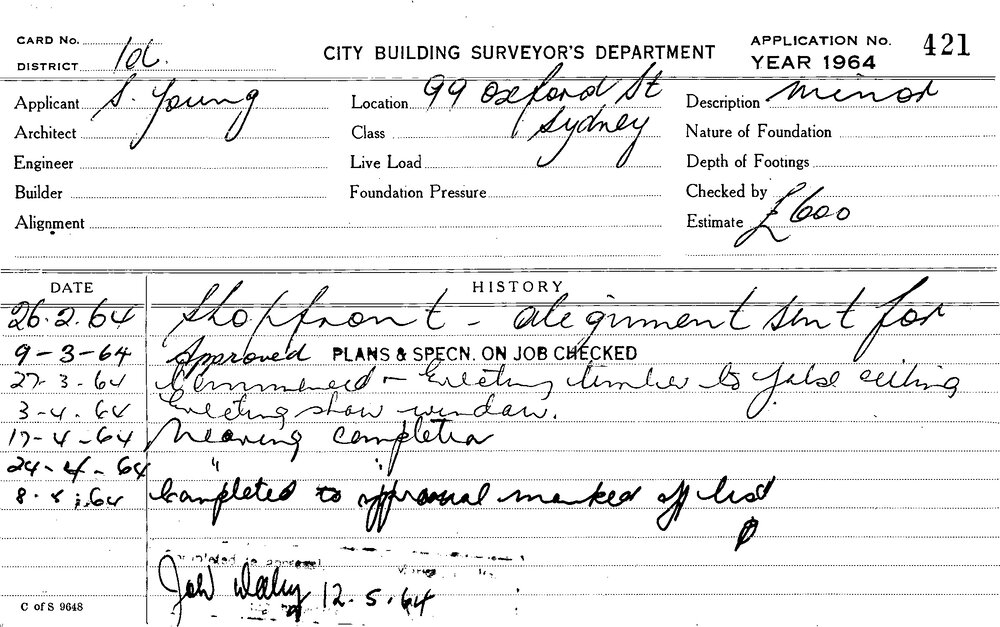 CARD No.
DISTRICT
CITY BUILDING SURVEYOR'S DEPARTMENT
APPLICATION No. 421
YEAR 1964
Applicant S. Young
Location 99 Oxford St
Sydney
Description Minor
Architect
Class
Nature of Foundation
Engineer
Live Load
Depth of Footings
Builder
Foundation Pressure
Checked by
Alignment
Estimate £600
DATE
HISTORY
26.2.64 Shopfront - alignment sent for
9-3-64 Approved PLANS & SPECN. ON JOB CHECKED
27-3-64 Commenced - Erecting timber to false ceiling
3-4-64 Erecting show window.
17-4-64 Nearing completion
24-4-64 " "
8.5.64 Completed to approval marked off list
12.5.64
C of S 9648